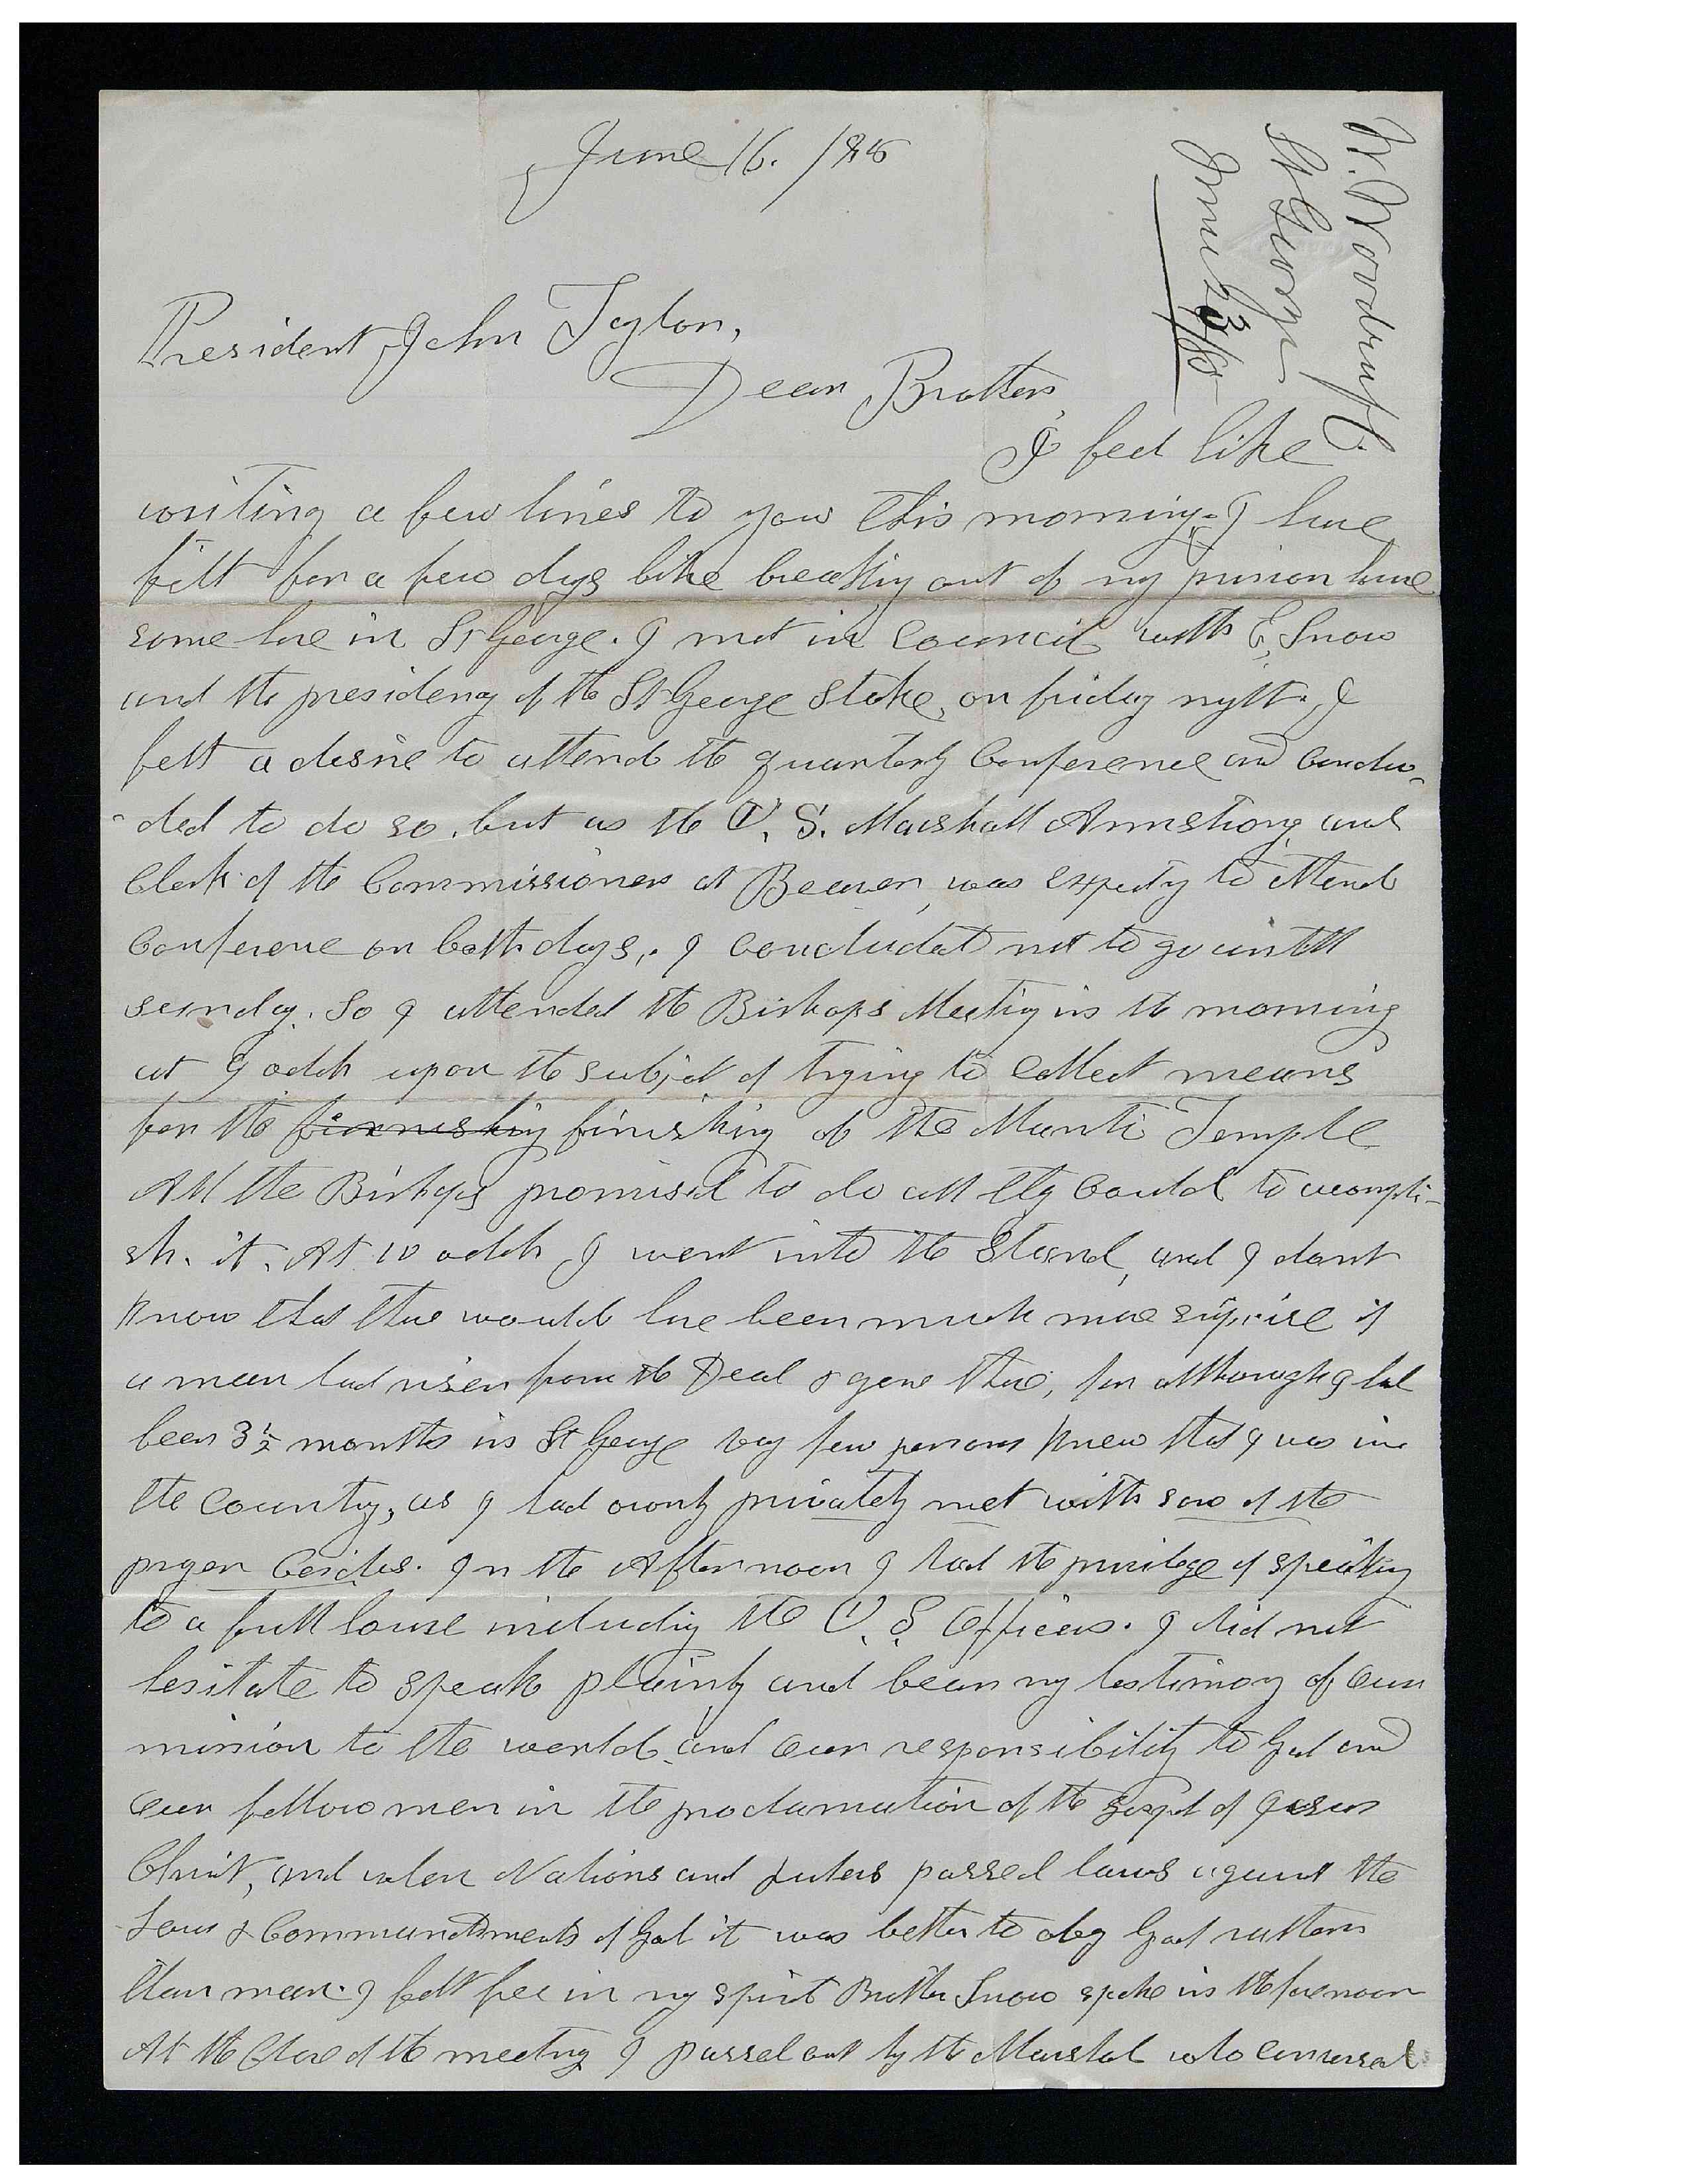 June 16. /85
W. Woodruff.
St George
June 13/85
President John Taylor,
Dear Brother
I feel like
writing a few lines to you this morning. I have
felt for a few days like breaking out of my prison house
some here in St George. I met in Council with E, Snow
and the presidency of the St George Stake, on friday night. I
felt a desire to attend the quarterly Conference and conclu-
-ded to do so, but as the U. S. Marshall Armstrong and
Clerk of the Commissioner at Beaver, was expecting to attend
Conference on both days, I concluded not to go untill
sunday. So I attended the Bishops Meeting in the morning
at 9 oclok upon the subject of trying to collect means
for the finnishing finishing of the Manti Temple
All the Bishops promised to do all they could to accompli-
sh. it. At 10 oclok I went into the Stand, and I dont
know that thare would have been much more suprise if
a man had risen from the Dead & gone thare, for although I had
been 3½ months in St George very few persons knew that I was in
the County, as I had ownly privately met with some of the
prayer Circles. In the Afternoon I had the privilege of speaking
to a full house including the U. S. Officers. I did not
hesitate to speak plainly and bear my testimony of our
mission to the world, and our responsibility to God and
our fellow men in the proclamation of the gospel of Jesus
Christ, and when Nations and rulers passed laws against the
Laws & Commandments of God it was better to obey God rather
than man. I felt free in my spirit Brother Snow spoke in the forenoon
At the Close of the meeting I passed out by the Marshal who conversed